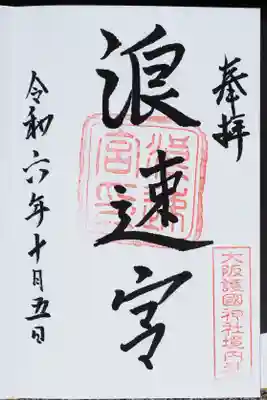 奉拝
大阪護國神社境内
浪速宮
令和六年十月五日